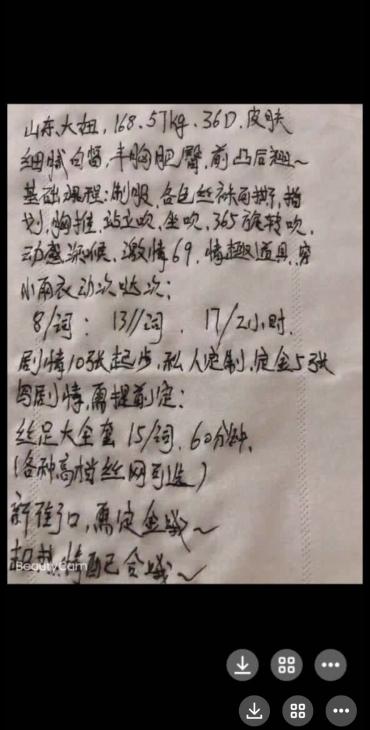 山东大妞，168.57kg.36D.皮肤
细腻白皙，丰胸肥臀，前凸后翘~
基础课程：制服，各色丝袜可撕，指
划，胸推，站立吹，坐吹，365旋转吹，
动感深喉，激情69，情趣道具，穿
小雨衣动次哒次；
8/词： 13//词 . 17/2小时.
剧情10张起步，私人定制，定金5张
剧情，需提前定：
丝足大全套 15/词，60分钟，
（各种高档丝网可选）
需定金哦~
配合哦~
BeautyCam